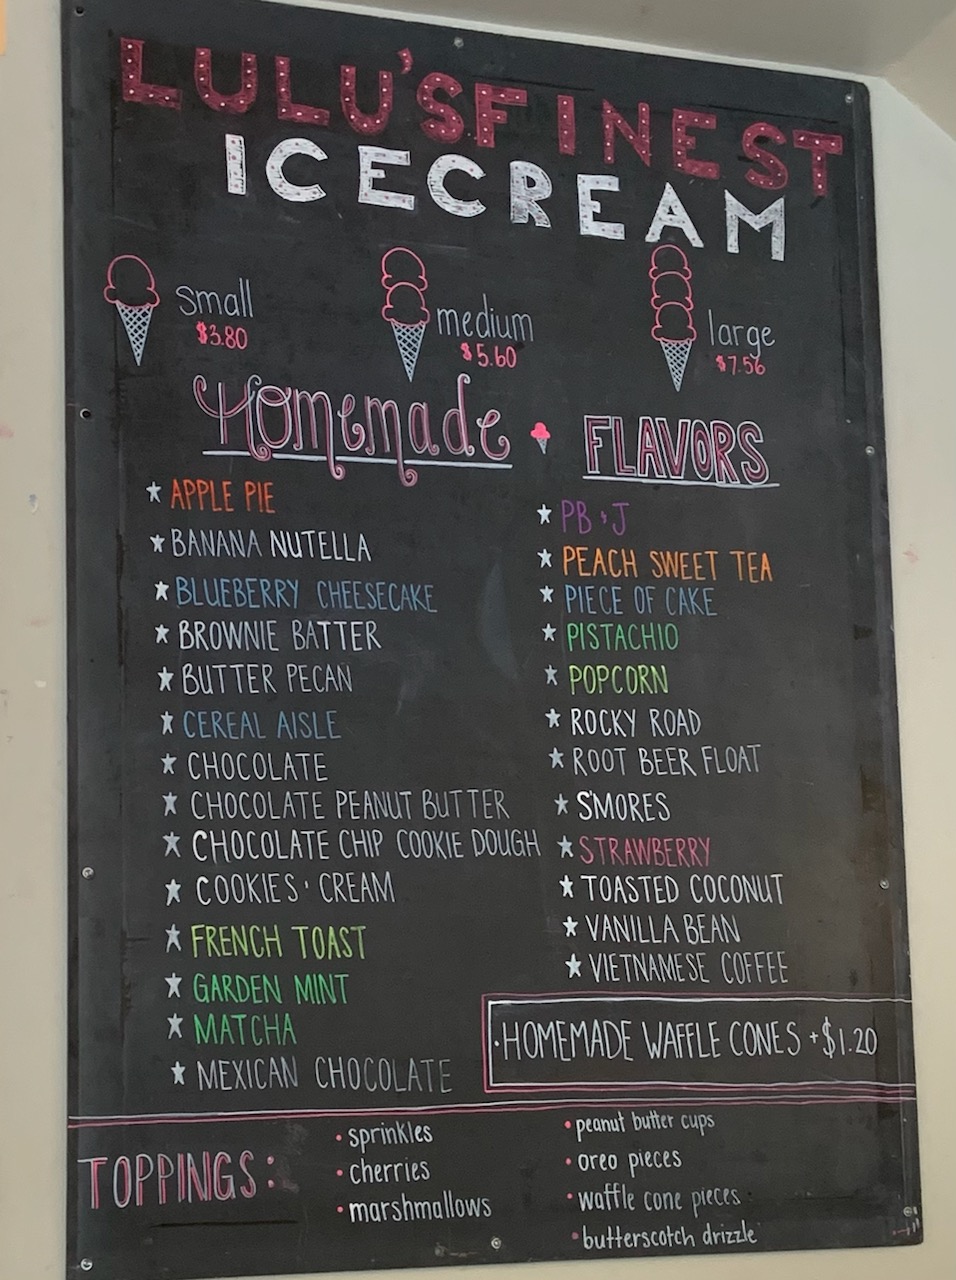 LULU'S FINEST
ICE CREAM
small
$3.80
medium
$5.60
large
$7.56
Homemade FLAVORS
APPLE PIE
BANANA NUTELLA
BLUEBERRY CHEESECAKE
BROWNIE BATTER
BUTTER PECAN
CEREAL AISLE
CHOCOLATE
CHOCOLATE PEANUT BUTTER
CHOCOLATE CHIP COOKIE DOUGH
COOKIES & CREAM
FRENCH TOAST
GARDEN MINT
MATCHA
MEXICAN CHOCOLATE
PB & J
PEACH SWEET TEA
PIECE OF CAKE
PISTACHIO
POPCORN
ROCKY ROAD
ROOT BEER FLOAT
S'MORES
STRAWBERRY
TOASTED COCONUT
VANILLA BEAN
VIETNAMESE COFFEE
·HOMEMADE WAFFLE CONES +$1.20
TOPPINGS:
· sprinkles
· cherries
· marshmallows
· peanut butter cups
· oreo pieces
· waffle cone pieces
· butterscotch drizzle